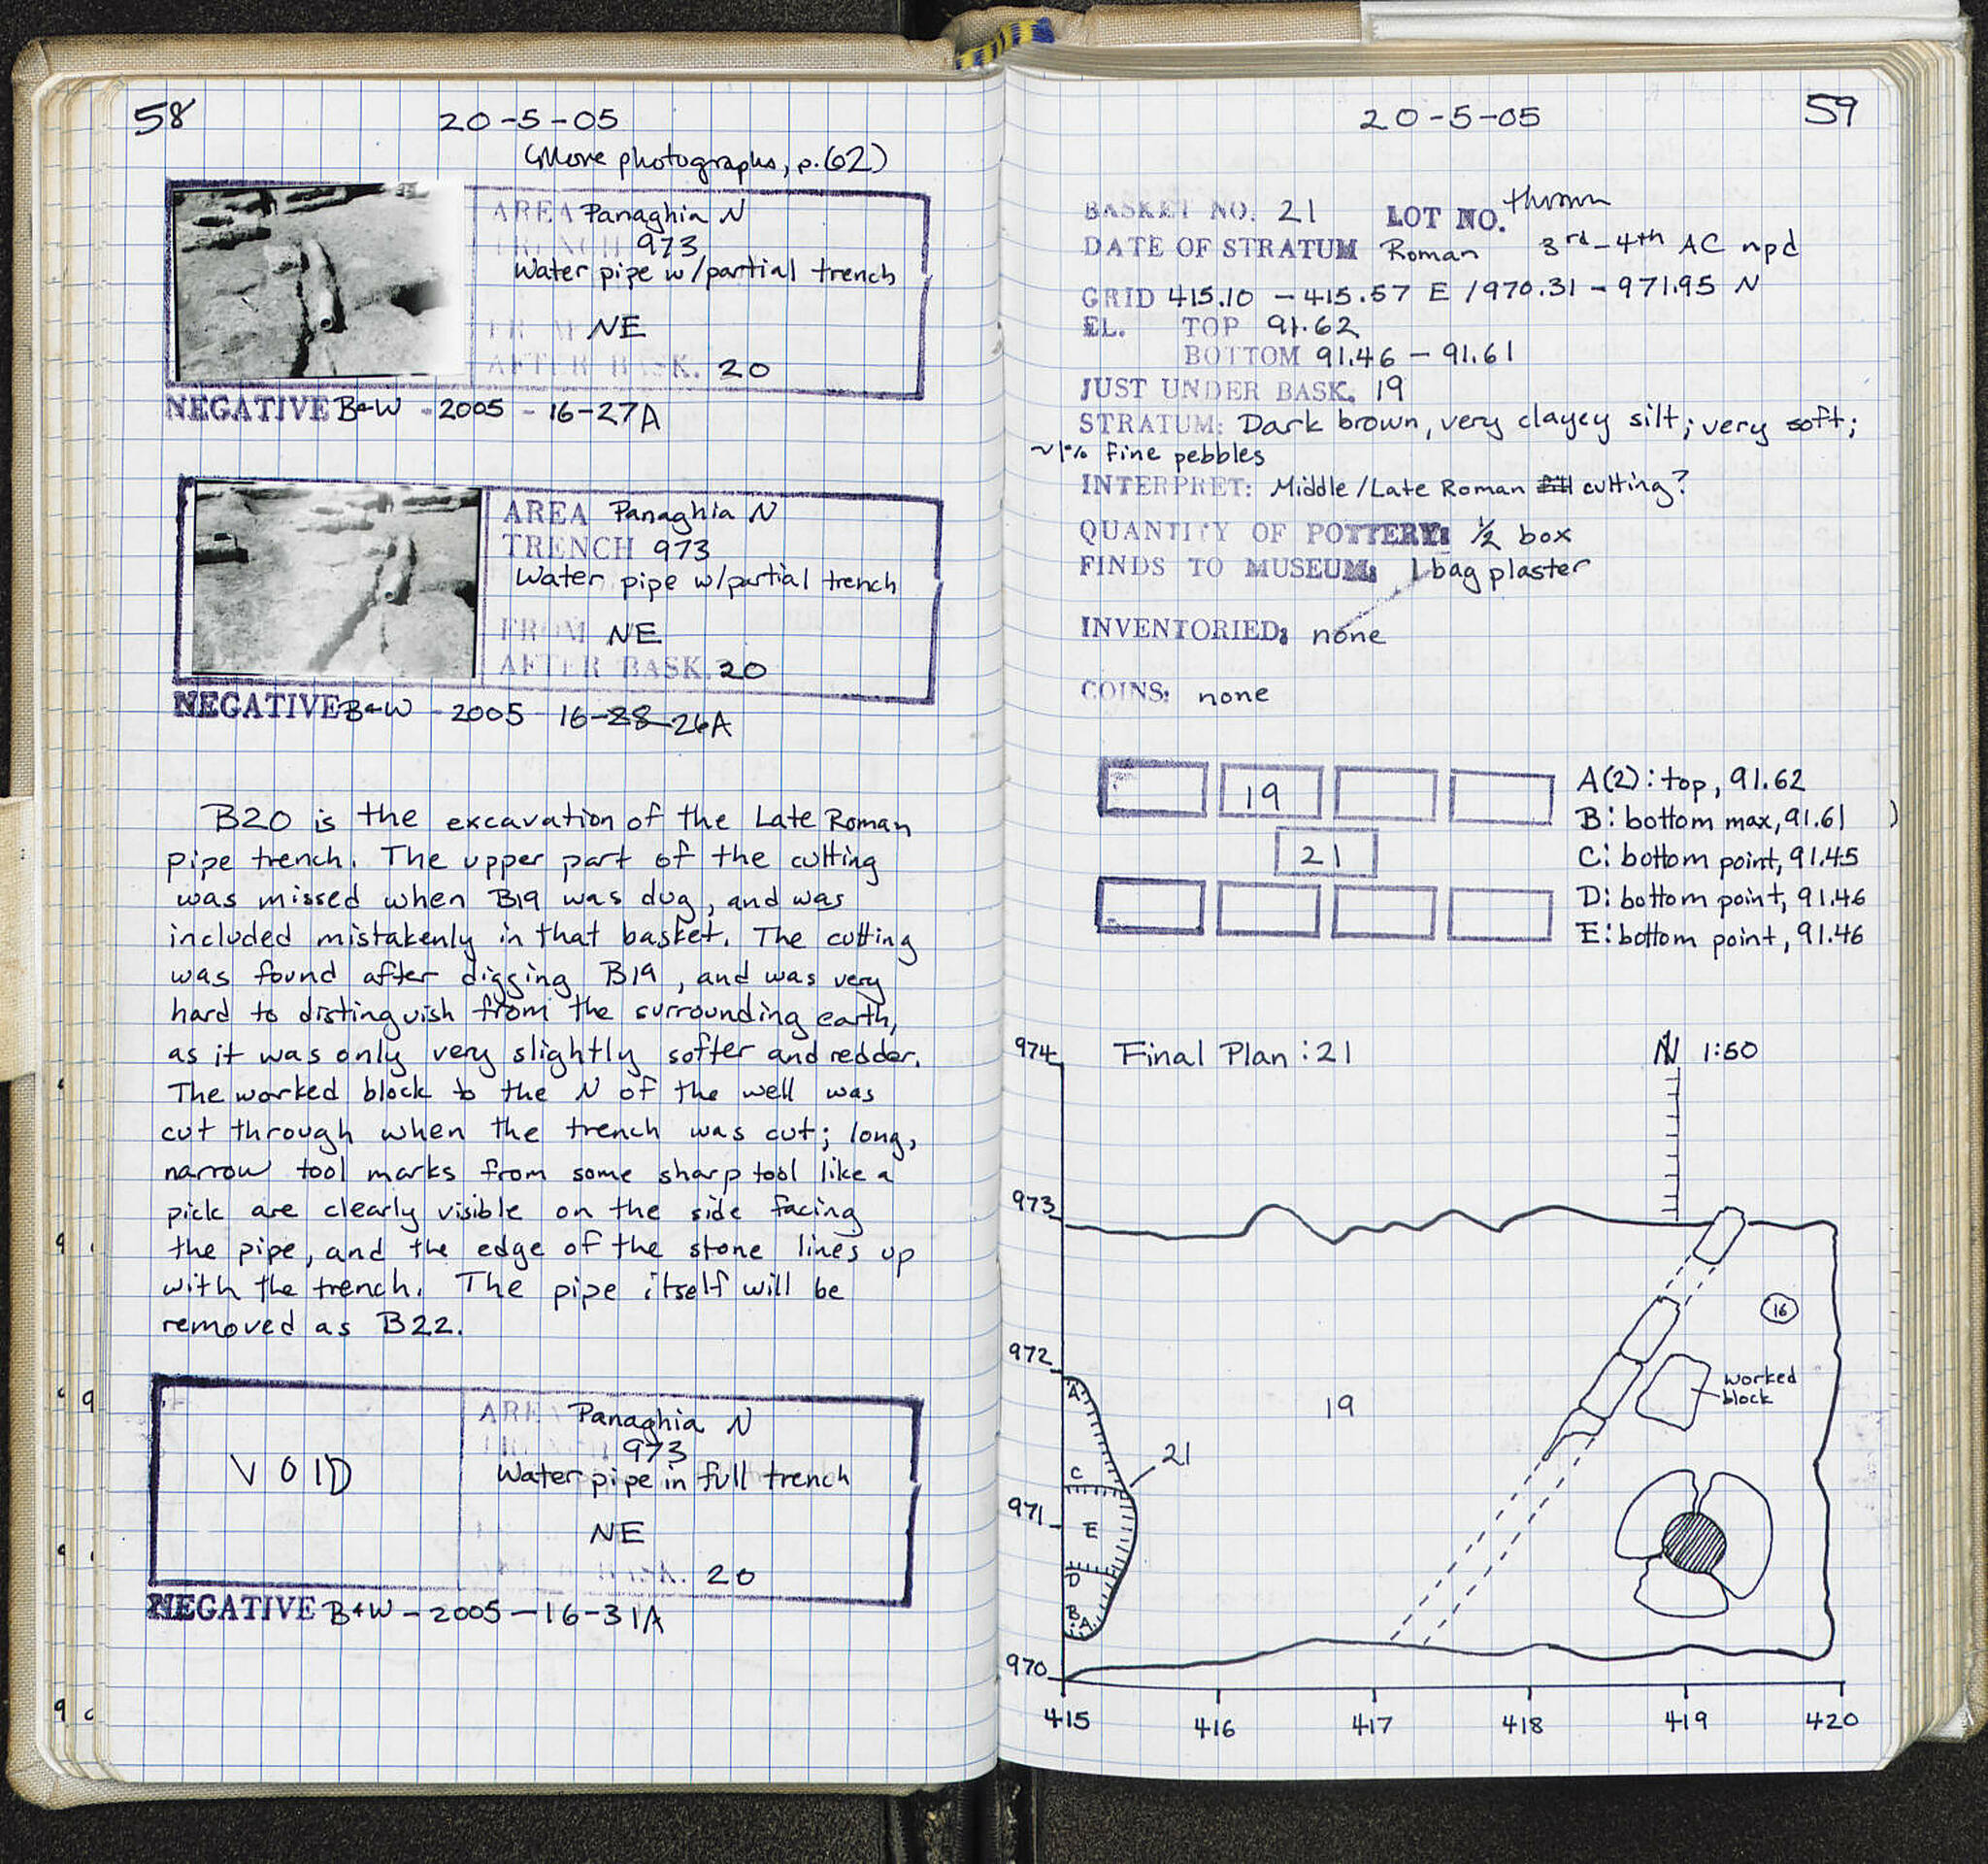 58
20-5-05
(More photographs, p.62)
AREA Panaghia N
TRENCH 973
Water pipe w/partial trench
FROM NE
AFTER BASK. 20
NEGATIVE B+W - 2005 - 16-27A
AREA Panaghia N
TRENCH 973
Water pipe w/partial trench
FROM NE
AFTER BASK. 20
NEGATIVE B+W - 2005 16-28 26A
B20 is the excavation of the Late Roman
pipe trench. The upper part of the cutting
was missed when B19 was dug, and was
included mistakenly in that basket. The cutting
was found after digging B19, and was very
hard to distinguish from the surrounding earth,
as it was only very slightly softer and redder.
The worked block to the N of the well was
cut through when the trench was cut; long,
narrow tool marks from some sharp tool like a
pick are clearly visible on the side facing
the pipe, and the edge of the stone lines up
with the trench. The pipe itself will be
removed as B22.
VOID
AREA Panaghia N
TRENCH 973
Water pipe in full trench
NE
BASK. 20
NEGATIVE B+W - 2005 - 16-31A
20-5-05
59
BASKET NO. 21 LOT NO. thrown
DATE OF STRATUM Roman 3rd-4th AC npd
GRID 415.10 - 415.57 E / 970.31 - 971.95 N
EL. TOP 91.62
BOTTOM 91.46 - 91.61
JUST UNDER BASK. 19
STRATUM: Dark brown, very clayey silt; very soft;
~1% fine pebbles
INTERPRET: Middle/Late Roman fill cutting?
QUANTITY OF POTTERY: 1/2 box
FINDS TO MUSEUM: 1 bag plaster
INVENTORIED: none
COINS: none
19
21
A(2): top, 91.62
B: bottom max, 91.61
C: bottom point, 91.45
D: bottom point, 91.46
E: bottom point, 91.46
Final Plan: 21
N 1:50
974
973
972
971
970
16
worked
block
19
21
A
C
E
D
B
A
415 416 417 418 419 420